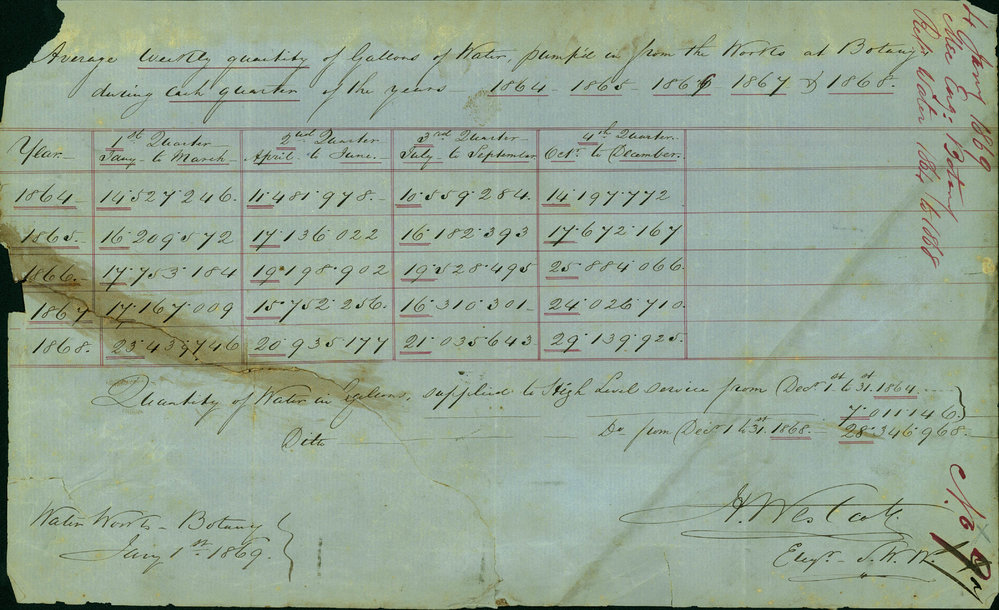 Average weekly quantity of Gallons of Water, pump'd in from the Works at Botany
during each quarter of the years 1864 - 1865 - 1866 - 1867 & 1868.
Year. 1st Quarter Jany to March 2nd Quarter April to June. 3rd Quarter July to September 4th Quarter Octr. to December.
1864 14·527·246. 11·481·978. 10·559·284. 14·197·772
1865 16·209·572 17·136·022 16·182·393 17·672·167
1866. 17·753·184 19·198·902 19·528·495 25·884·066.
1867 17·167·009 15·752·256. 16·310·301. 24·026·710.
1868. 23·439·746 20·935·177 21·035·643 29·139·925.
Quantity of Water in Gallons, supplied to High Level service from Decr 1st to 31st 1864
7·011·146.
Ditto Do from Decr 1 to 31st 1868 28·346·968
Water Works - Botany
Jany 1st 1869.
H. Westcott
Engr. S.W.W.
4 Jany 1869
Botany
Water 1864 to 1868
No